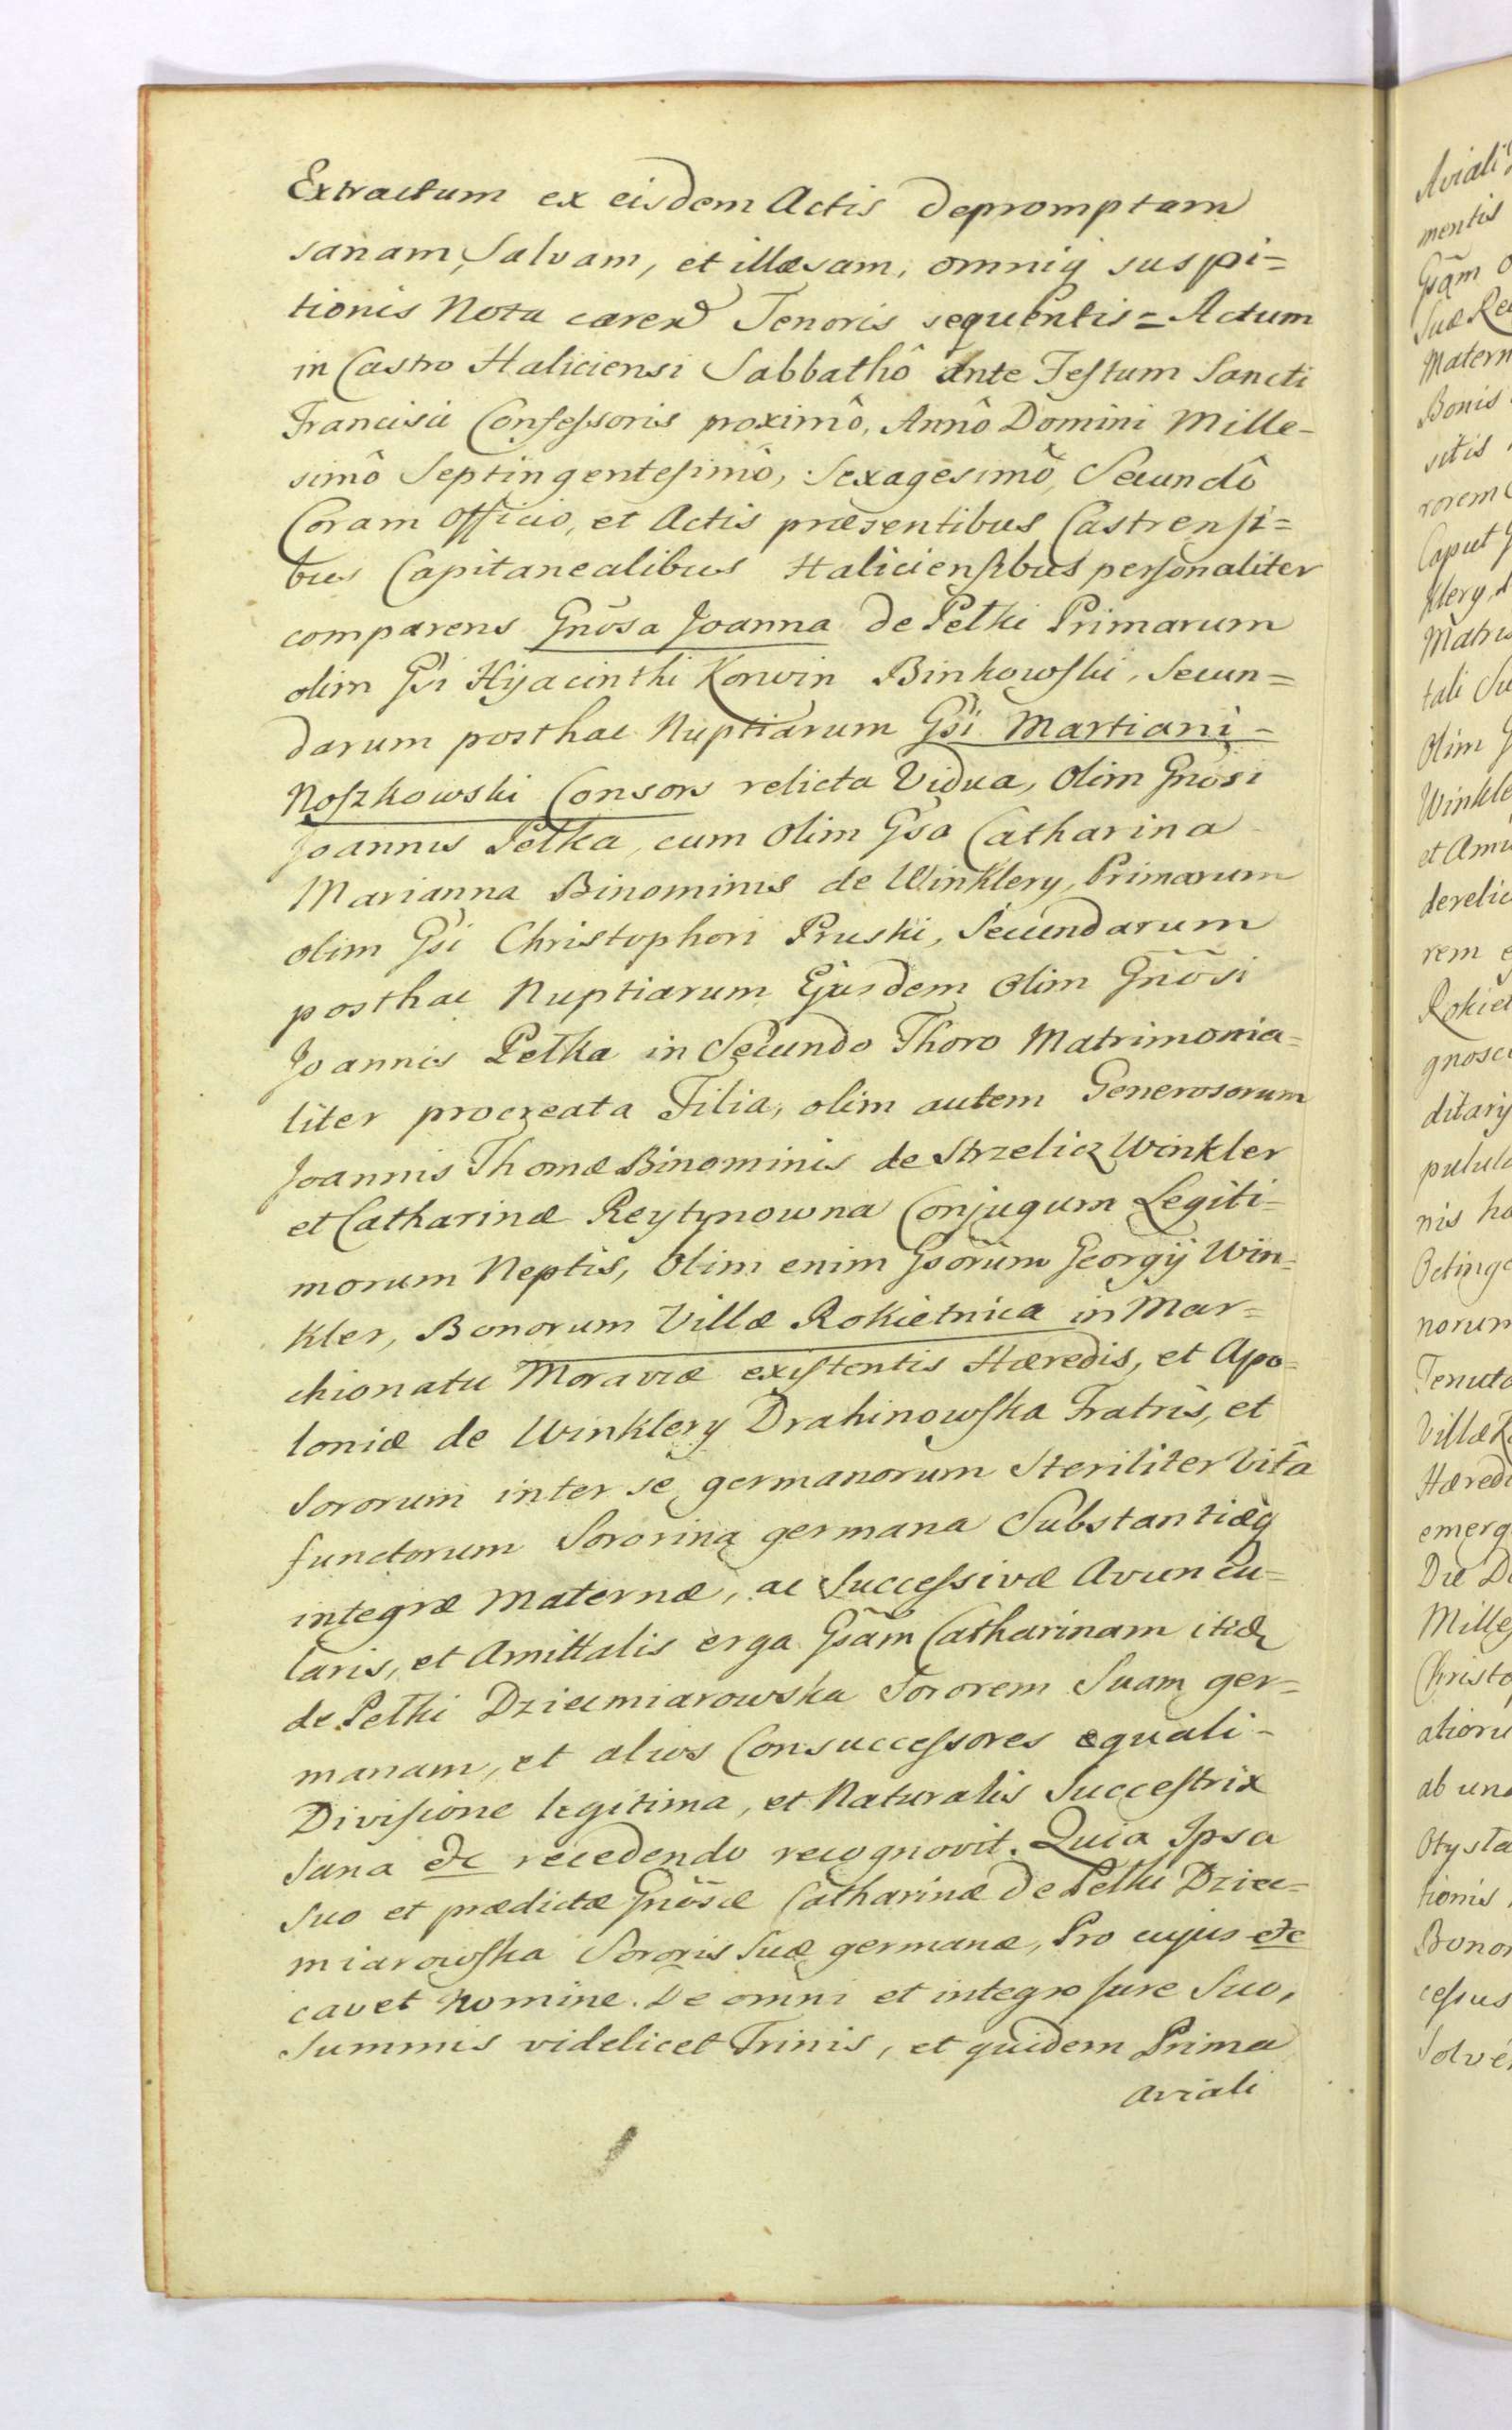 Extractum ex eisdem Actis depromptam
sanam, Salvam, et illæsam, omniq suspi=
tionis Nota caren Tenoris sequentis = Actum
in Castro Haliciensi Sabbathô ante Festum Sancti
Francisci Confessoris proximô, Annô Domini Mille-
simô Septingentesimô, Sexagesimô, Secundô
Coram Officio, et Actis præsentibus Castrensi=
bus Capitanealibus Haliciensibus personaliter
comparens Gnosa Joanna de Petki Primarum
olim Gsi Hyacinthi Korwin Binkowski, Secun=
darum posthac Nuptiarum Gsi Martiani -
Noszkowski Consors relicta Vidua, Olim Gnosi
Joannis Petka, cum Olim Gsa Catharina
Marianna Binominis de Winklery, Primarum
olim Gsi Christophori Pruski, Secundarum
posthac Nuptiarum Ejusdem Olim Gnosi
Joannis Petka in Secundo Thoro Matrimonia=
liter procreata Filia, olim autem Generosorum
Joannis Thomæ Binominis de Strzelicz Winkler
et Catharinæ Reytynowna Conjugum Legiti=
morum Neptis, Olim enim Gsorum Georgij Win=
kler, Bonorum Villæ Rokietnica in Mar=
chionatu Moraviæ existentis Hæredis, et Apo=
loniæ de Winklery Drahinowska Fratris, et
Sororum inter se germanorum Steriliter Vitâ
functorum Sororina germana Substantiæq
integræ Maternæ, ac Successivæ Avuncu=
laris, et Amittalis erga Gsam Catharinam itid
de Petki Dzieimiarowska Sororem Suam ger=
manam, et alios Consuccessores æquali-
Divisione legitima, et Naturalis Successtrix
Sana etc recedendo recognovit. Quia Ipsa
Suo et prædictæ Gnosæ Catharinæ de Petki Dziei=
miarowska Sororis Suæ germanæ, Pro cujus etc
cavet Nomine. De omni et integro Jure Suo,
Summis videlicet Trinis, et quidem Prima
Aviali
Aviali
mentis
Gsam
Suæ
Matern
Bonis
sitis
rorem
Caput
klery,
Matris
tali
Olim
Winkle
et
derelic
rem
Rokiet
gnosc
ditarij
pulul
nis
Octing
norum
Tenut
Villæ
Hæred
emerg
Die
Mille
Christ
ation
ab
Otysta
tionis
Bonor
cessus
Solve